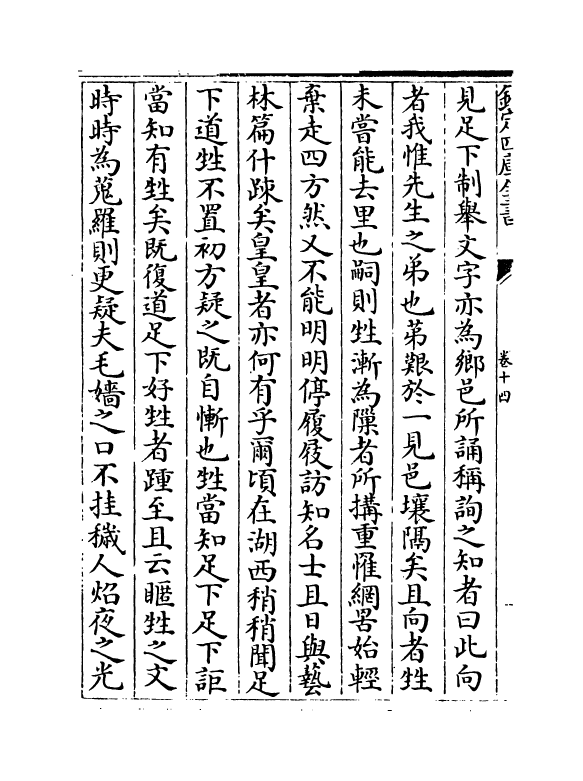 欽定四庫全書
卷十四
見足下制舉文字亦為鄉邑所誦稱詢之知者曰此向
者我惟先生之弟也苐艱於一見邑壤隔矣且向者甡
未嘗能去里也嗣則甡漸為隟者所搆重罹網罟始輕
棄走四方然又不能明明停履屐訪知名士且日與藝
林篇什踈矣皇皇者亦何有乎爾頃在湖西稍稍聞足
下道甡不置初方疑之既自慚也甡當知足下足下詎
當知有甡矣既復道足下好甡者踵至且云匭甡之文
時時為蒐羅則更疑夫毛嬙之口不挂穢人焰夜之光